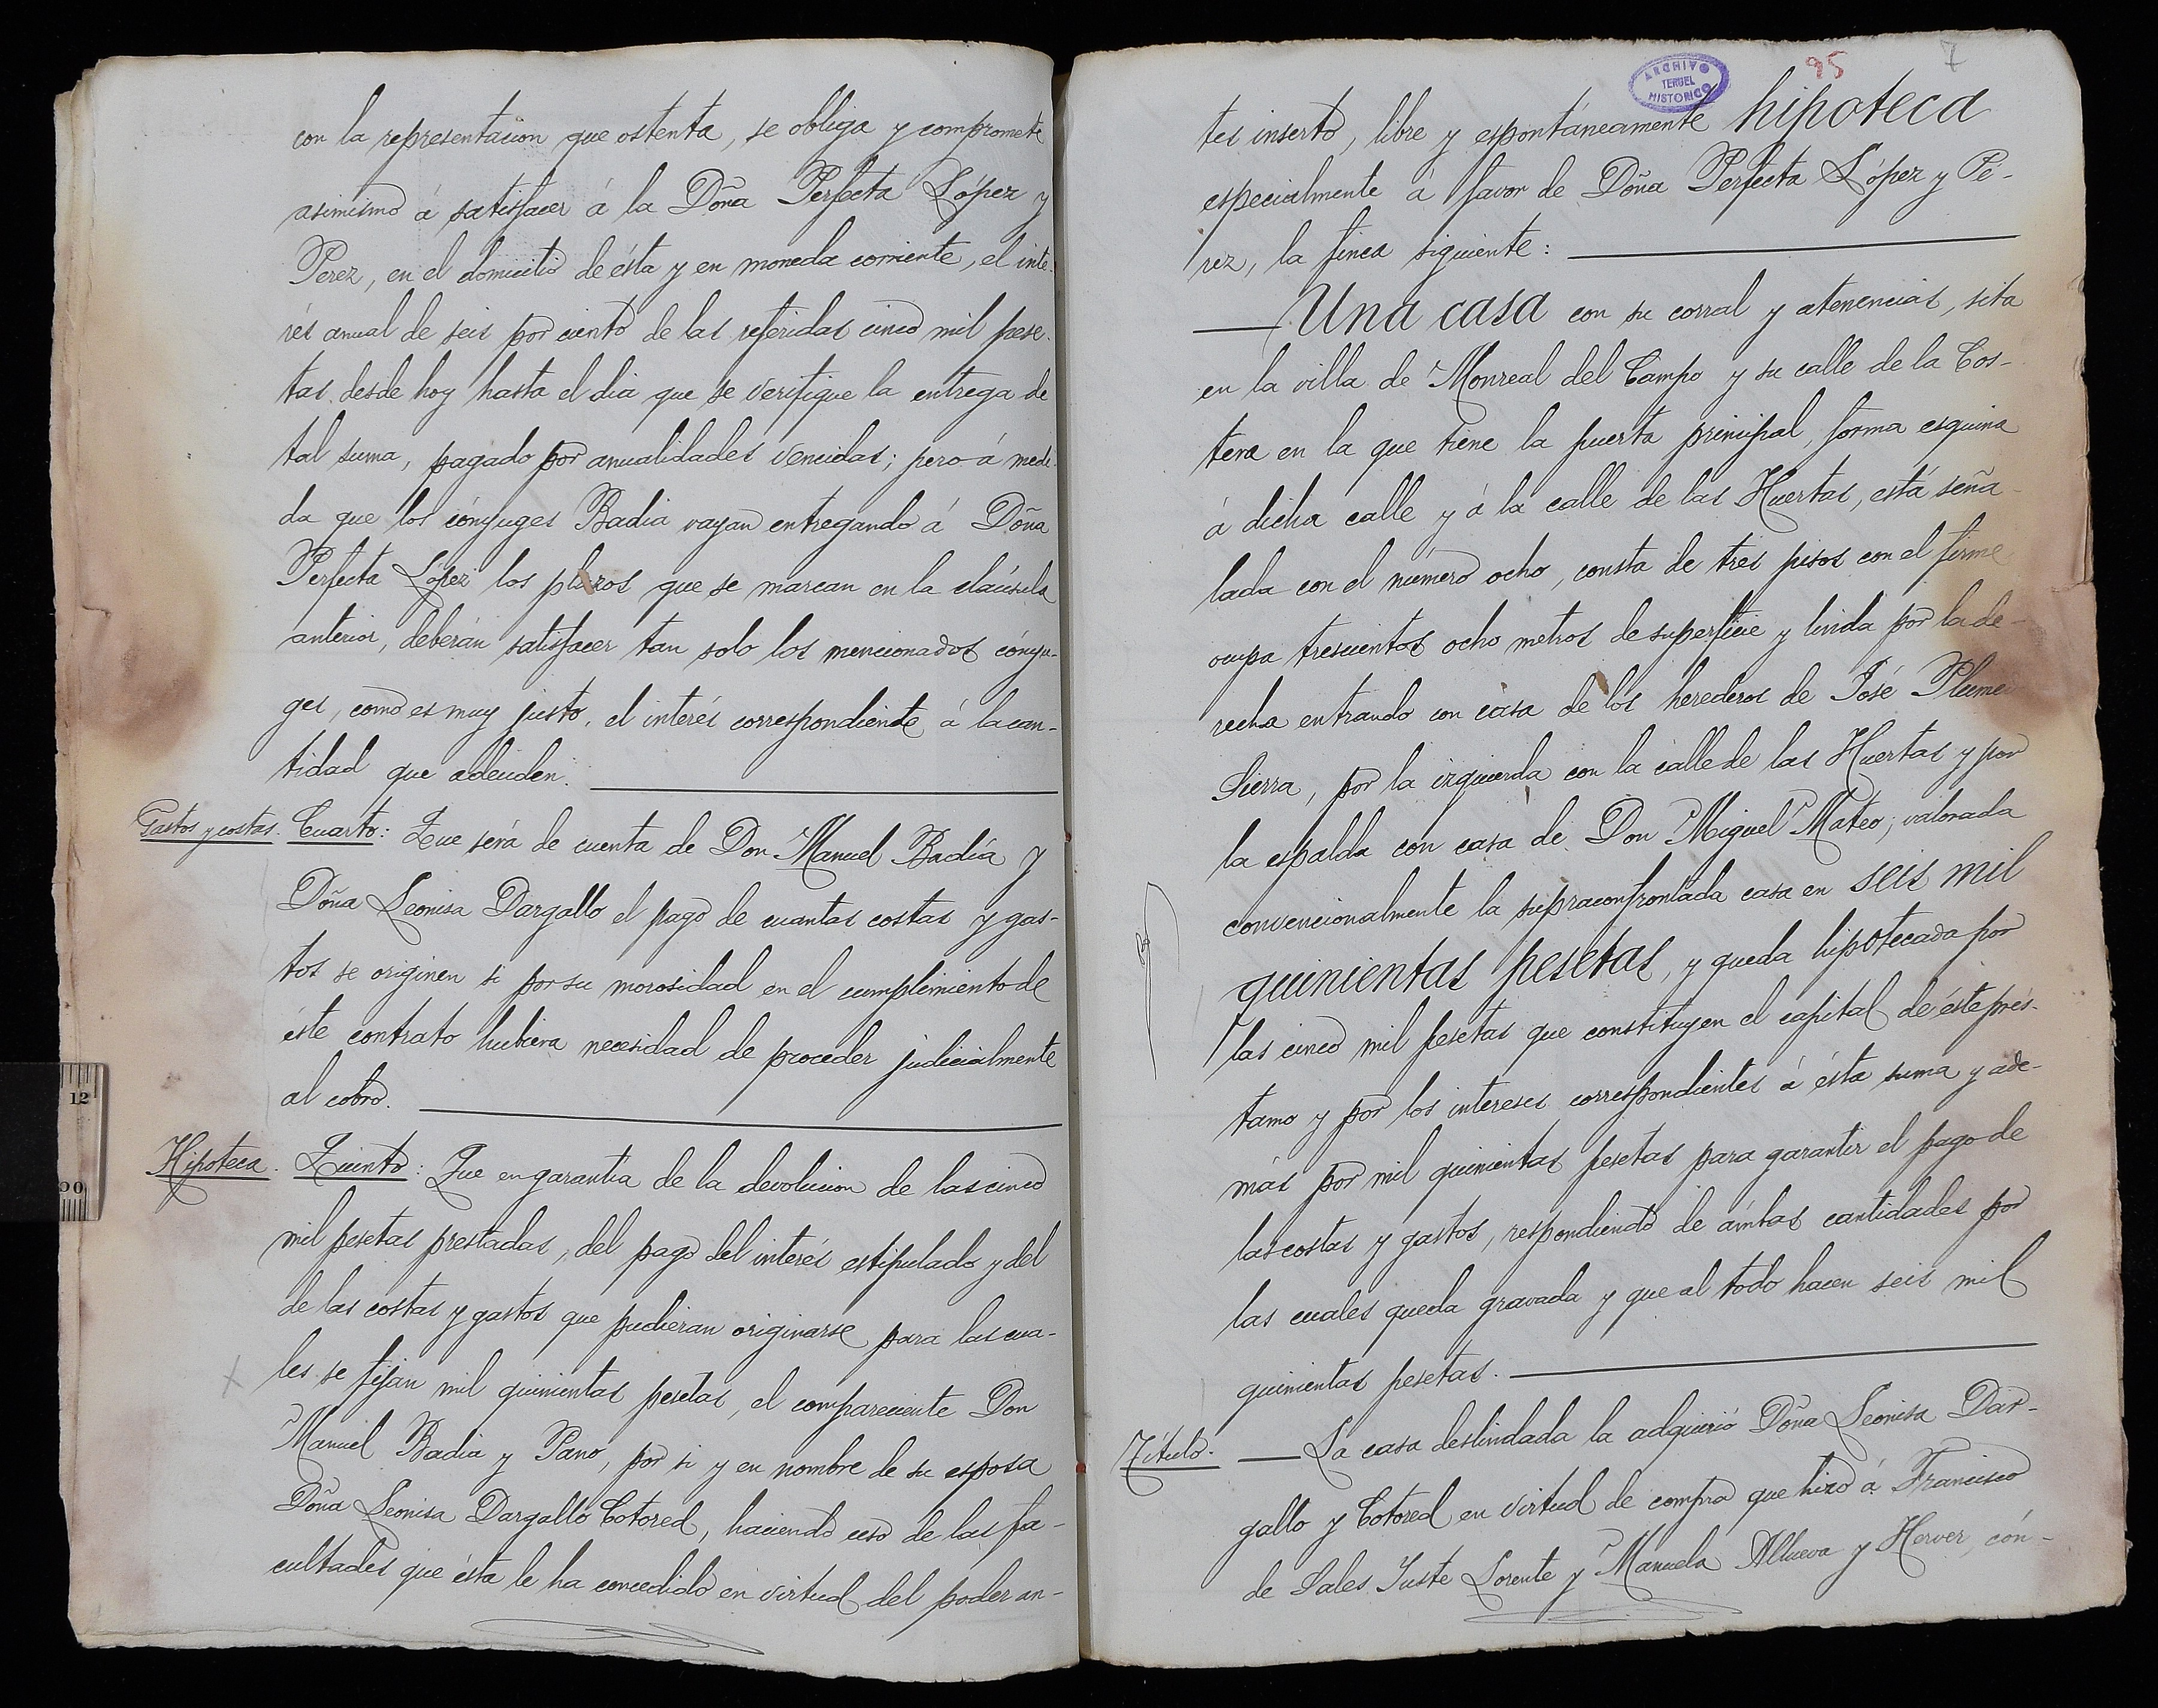 con la representacion que ostenta, se obliga y compromete
asimismo á satisfacer á la Doña Perfecta López y
Perez, en el domicilio de ésta y en moneda corriente, el inte-
rés anual de seis por ciento de las referidas cinco mil pese-
tas desde hoy hasta el dia que se verifique la entrega de
tal suma, pagado por anualidades vencidas; pero á medi-
da que los cónyuges Badia vayan entregando á Doña
Perfecta López los plazos que se marcan en la claúsula
anterior, deberán satisfacer tan solo los mencionados cónyu-
ges, como es muy justo, el interés correspondiente á la can-
tidad que adeuden.
Gastos y costas. Cuarto: Que será de cuenta de Don Manuel Badía y
Doña Leonisa Dargallo el pago de cuantas costas y gas-
tos se originen si por su morosidad en el cumplimiento de
éste contrato hubiera necesidad de proceder judicialmente
al cobro.
Hipoteca. Quinto: Que en garantia de la devolucion de las cinco
mil pesetas prestadas, del pago del interés estipulado y del
de las costas y gastos que pudieran originarse para las cua-
les se fijan mil quinientas pesetas, el compareciente Don
Manuel Badia y Pano, por si y en nombre de su esposa
Doña Leonisa Dargallo Cotored, haciendo uso de las fa-
cultades que ésta le ha concedido en virtud del poder an-
ARCHIVO
TERUEL
HISTORICO
95
7
tes inserto, libre y espontáneamente hipoteca
especialmente á favor de Doña Perfecta López y Pe-
rez, la finca siguiente:
Una casa con su corral y atenencias, sita
en la villa de Monreal del Campo y su calle de la Cos-
tera en la que tiene la puerta principal, forma esquina
á dicha calle y á la calle de las Huertas, está seña-
lada con el número ocho, consta de tres pisos con el firme
ocupa trescientos ocho metros de superficie y linda por la de-
recha entrando con casa de los herederos de José Plume
Sierra, por la izquierda con la calle de las Huertas y por
la espalda con casa de Don Miguel Mateo; valorada
convencionalmente la supraconfrontada casa en seis mil
quinientas pesetas, y queda hipotecada por
las cinco mil pesetas que constituyen el capital de éste prés-
tamo y por los intereses correspondientes á ésta suma y ade-
más por mil quinientas pesetas para garantir el pago de
las costas y gastos, respondiendo de ámbas cantidades por
las cuales queda gravada y que al todo hacen seis mil
quinientas pesetas.
Título. La casa deslindada la adquirió Doña Leonisa Dar-
gallo y Cotored en virtud de compra que hizo á Francisco
de Sales Juste Lorente y Manuela Allueva y Herver, cón-